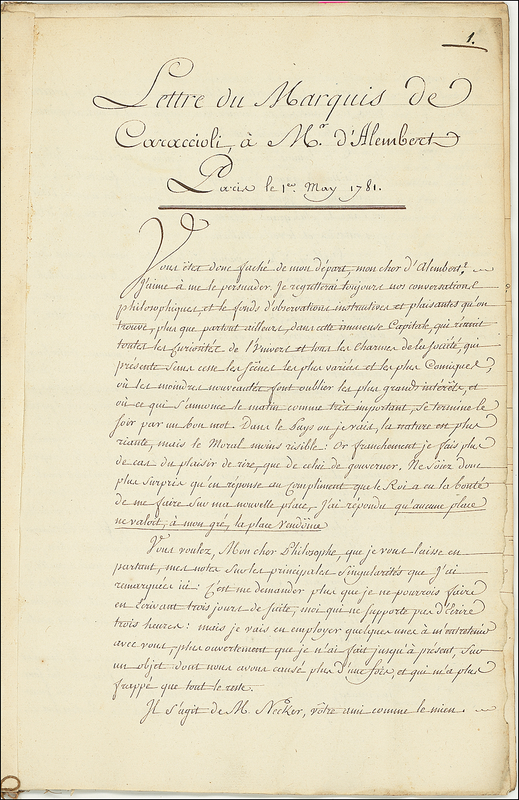 1.
Lettre du Marquis de
Caraccioli, à M.r d'Alembert
Paris le 1.er May 1781.
Vous êtes donc faché de mon départ, mon cher d'Alembert?
J'aime à me le persuader. Je regretterai toujours nos conversations
philosophiques, et le fonds d'observations instructives et plaisantes qu'on
trouve, plus que partout ailleurs, dans cette immense Capitale, qui réunit
toutes les Curiosités de l'Univers et tous les Charmes de la Société, qui
présente sans cesse les scènes les plus variées et les plus Comiques,
où les moindres nouveautés font oublier les plus grands intérêts, et
où ce qui s'annonce le matin comme très important, se termine le
soir par un bon mot. Dans le Pays ou je vais, la nature est plus
riante, mais le Moral moins risible: Or franchement je fais plus
de cas du plaisir de rire, que de celui de gouverner. Ne soiez donc
plus surpris qu'en réponse au Compliment que le Roi a eu la bonté
de me faire sur ma nouvelle place, J'ai répondu qu'aucune place
ne valoit, à mon gré, la place Vendôme
Vous voulez, Mon cher Philosophe, que je vous laisse en
partant, mes notes sur les principales singularités que J'ai
remarquées ici: C'est me demander plus que je ne pourrois faire
en écrivant trois jours de suite, moi qui ne supporte pas d'Ecrire
trois heures: mais je vais en employer quelques unes à m'entretenir
avec vous, plus ouvertement que je n'ai fait jusqu'à présent, sur
un objet dont nous avons causé plus d'une fois, et qui m'a plus
frappé que tout le reste.
Il s'agit de M. Necker, vôtre ami comme le mien.